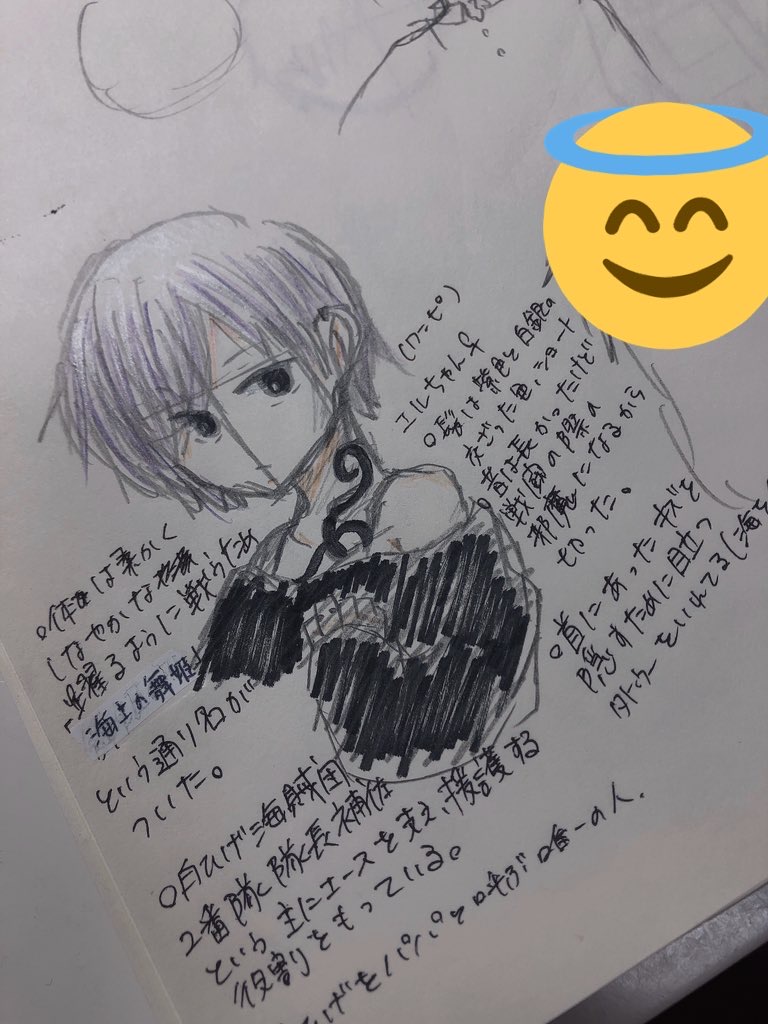 (ワンピ)
エルちゃん♀
○髪は紫色と白銀の
交ざった色。ショート
○昔は長かったけど
戦闘の際の
邪魔になるから
切った。
○首にあったキズを
隠すために目立つ
タトゥーをいれてる(海を
○体は柔かく
しなやかな
踊るように戦うため
「海上の舞姫」
という通り名が
ついた。
○白ひげ海賊団
2番隊隊長補佐
という主にエースを支え、援護する
役割をもっている。
ひげをパパと呼ぶ唯一の人.